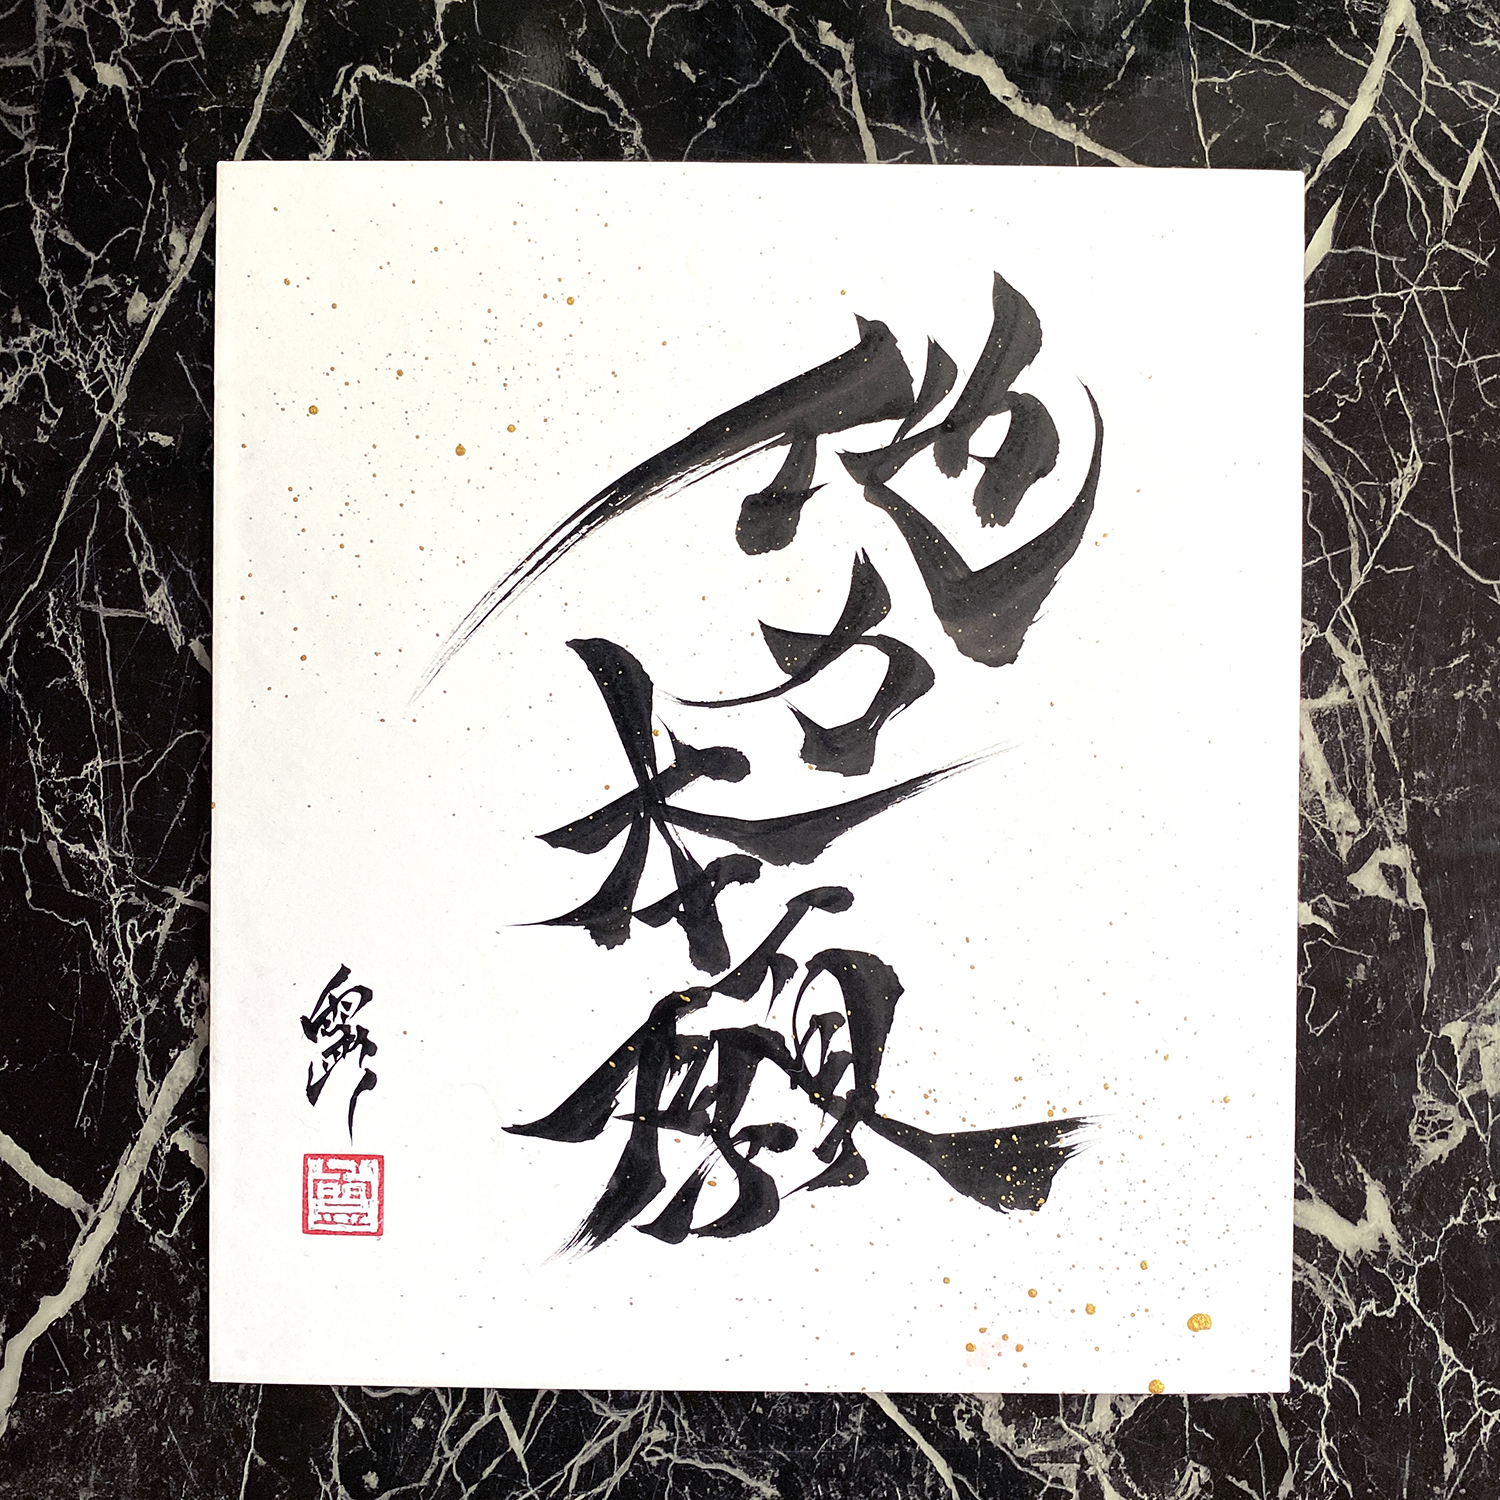 他力本願